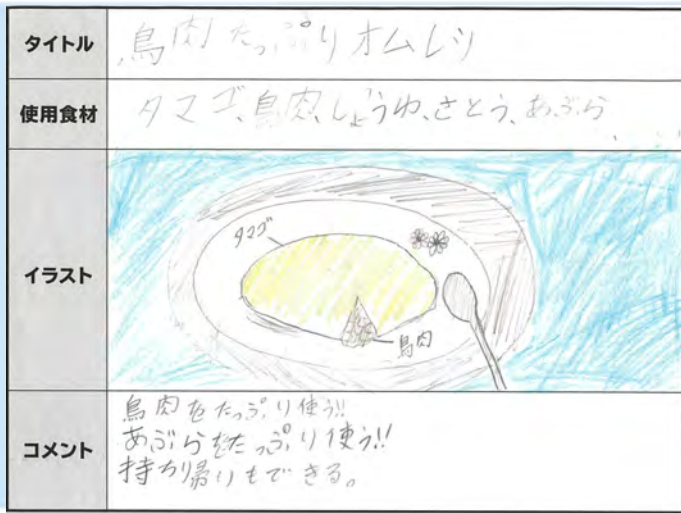 タイトル
鳥肉たっぷりオムレツ
使用食材
タマゴ、鳥肉、しょうゆ、さとう、あぶら
イラスト
タマゴ
鳥肉
コメント
鳥肉をたっぷり使う!!
あぶらをたっぷり使う!!
持ち帰りもできる。